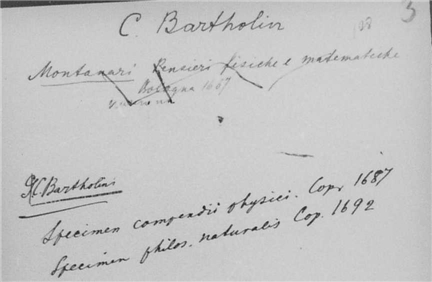 C. Bartholin
Montanari Pensieri fisiche e matematiche
Bologna 1667
C Bartholini
Specimen compendii physici. Cop. 1687
Specimen philos. naturalis Cop. 1692